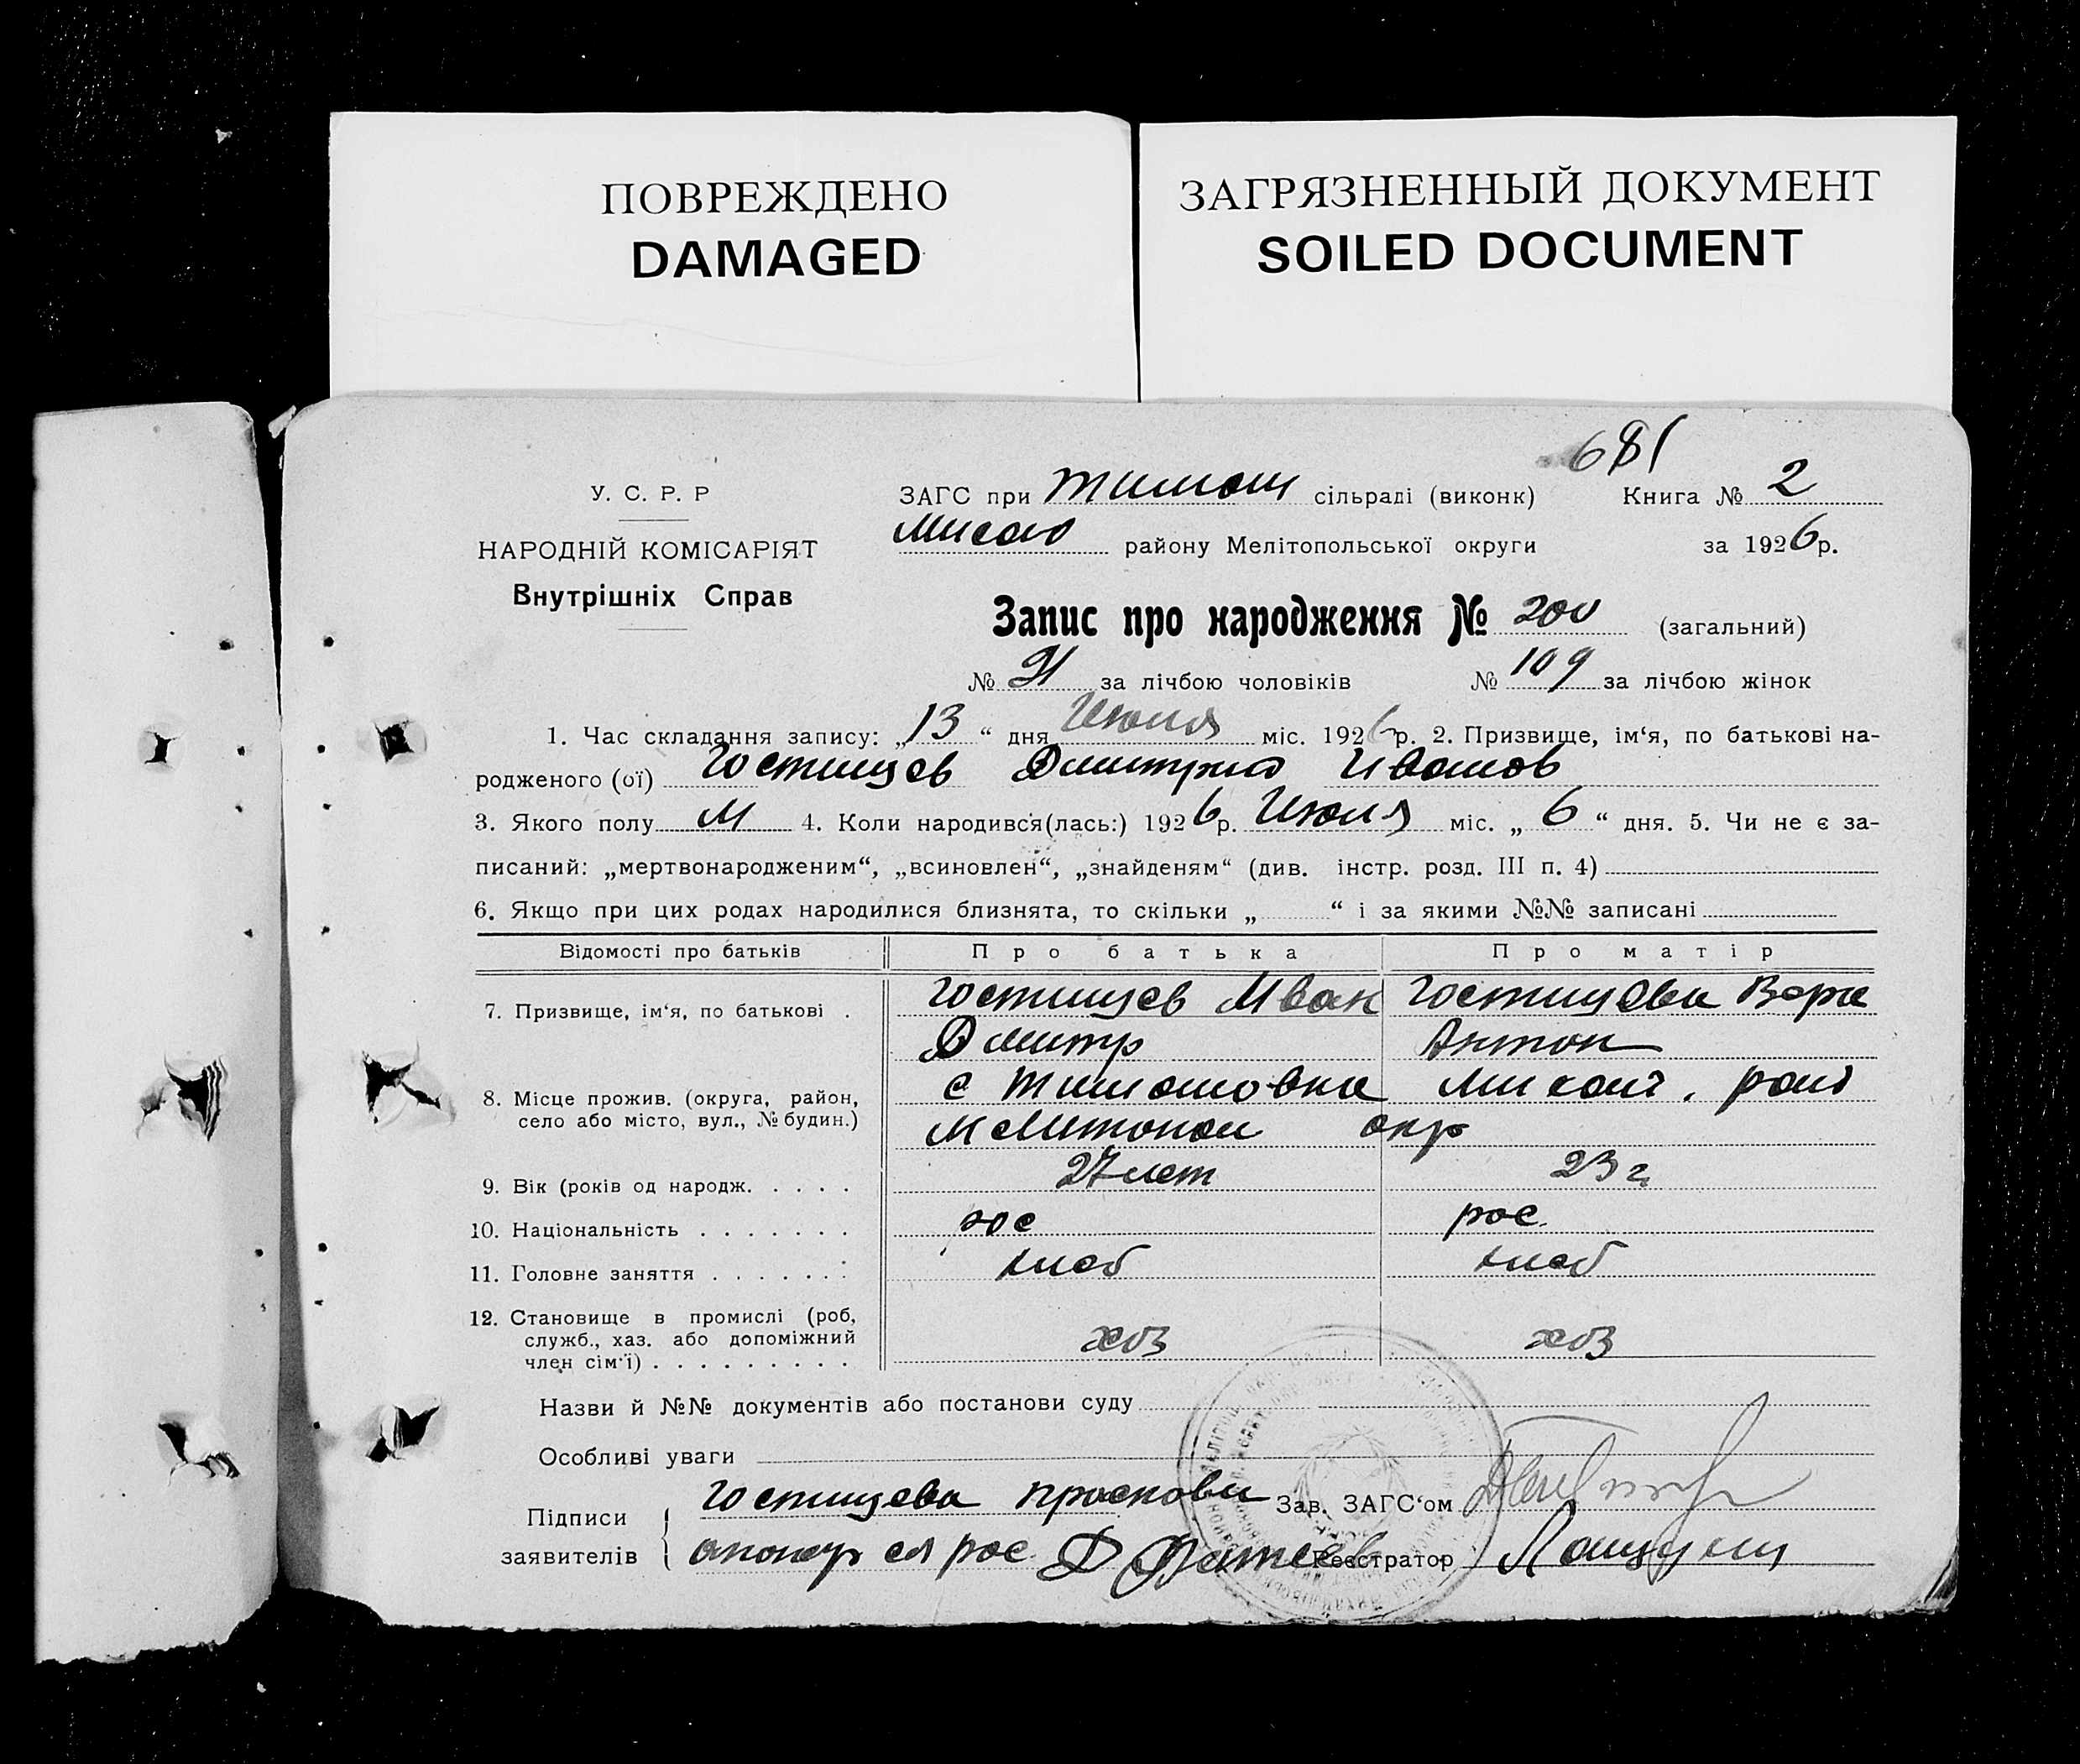 ПОВРЕЖДЕНО
DAMAGED
ЗАГРЯЗНЕННЫЙ ДОКУМЕНТ
SOILED DOCUMENT
681
У. С. Р. Р
НАРОДНІЙ КОМІСАРІЯТ
Внутрішніх Справ
ЗАГС при Тимош сільраді (виконк) Книга № 2
району Мелітопольської округи за 1926 р.
Запис про народження № 200 (загальний)
№ 91 за лічбою чоловіків № 109 за лічбою жінок
1. Час складання запису: „13“ дня Июля міс. 1926 р. 2. Призвище, ім‘я, по батькові на-
родженого (ої) Гостищев Димитрий Иванов
3. Якого полу М 4. Коли народився(лась:) 1926 р. Июля міс. „6“ дня. 5. Чи не є за-
писаний: „мертвонародженим“, „всиновлен“, „знайденям“ (див. інстр. розд. III п. 4)
6. Якщо при цих родах народилися близнята, то скільки „ “ і за якими №№ записані
Відомості про батьків Про батька Про матір
7. Призвище, ім‘я, по батькові . Гостищев Иван Гостищева Вера
Дмитр Антон
8. Місце прожив. (округа, район, с Тимошовка Михайл. рай
село або місто, вул., № будин.) Мелитопол окр
9. Вік (років од народж. . . . . 27 лет 23 г.
10. Національність . . . . . . . рос рос.
11. Головне заняття . . . . . . . хлеб хлеб
12. Становище в промислі (роб,
служб., хаз. або допоміжний хоз хоз
член сім‘ї) . . . . . . . . .
Назви й №№ документів або постанови суду
Особливі уваги
Підписи Гостищева Просковия Зав. ЗАГС‘ом
заявителів рос Д Фатеев Реєстратор